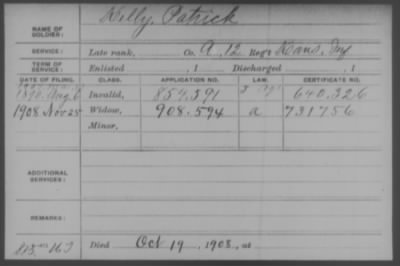 Kelly, Patrick
NAME OF SOLDIER:
SERVICE: Late rank, Co. A, 12 Reg't Kans. Inf
TERM OF SERVICE: Enlisted , 1 Discharged , 1
DATE OF FILING. CLASS. APPLICATION NO. LAW. CERTIFICATE NO.
1890 Aug 6 Invalid, 857.391 640.326
1908 Nov 25 Widow, 908.594 a 731756
Minor,
ADDITIONAL SERVICES:
REMARKS:
Died Oct 19, 1908, at